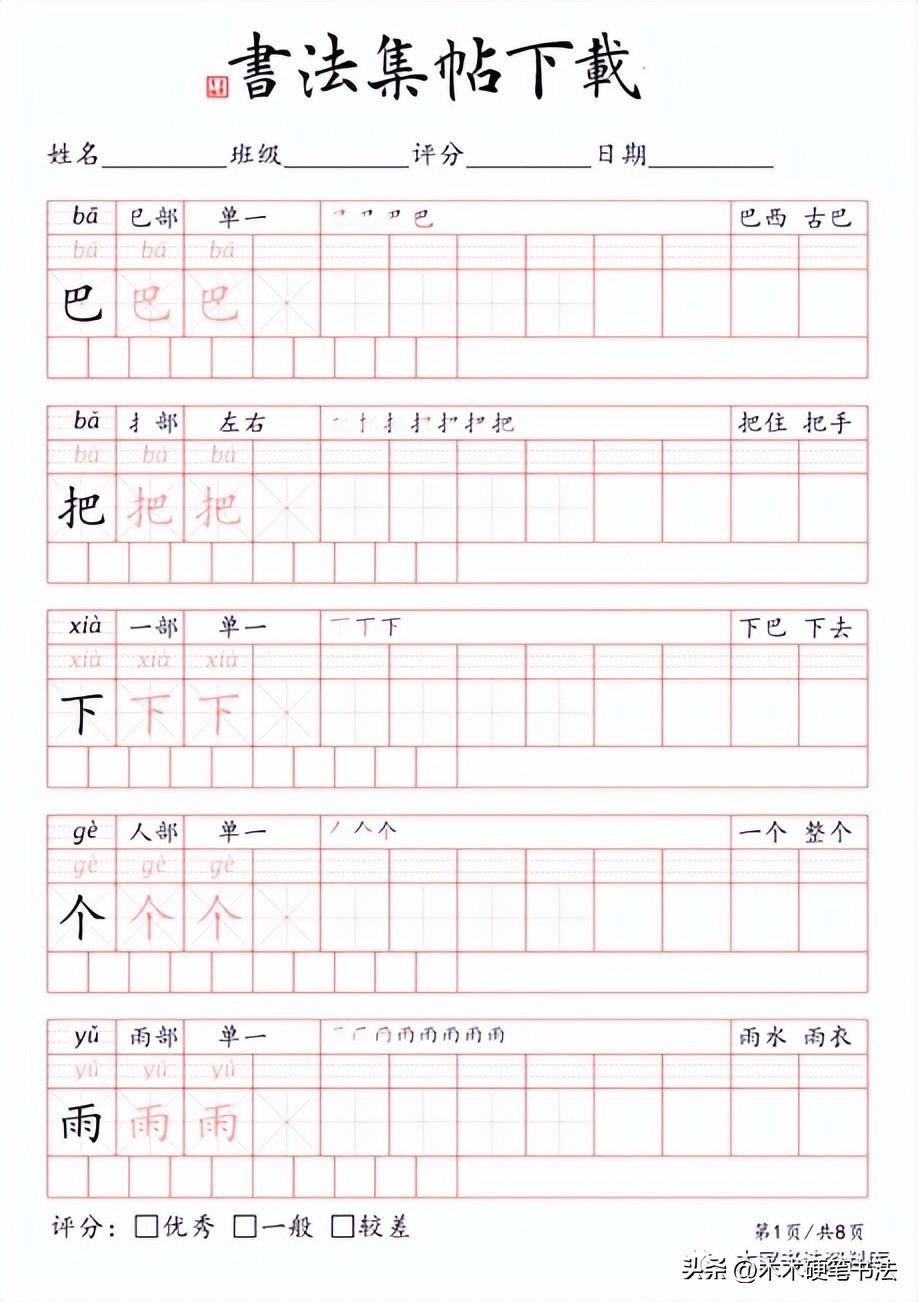 書法集帖下載
姓名 班级 评分 日期
bā 巴部 单一 巴 巴西 古巴
bā bā bā
巴 巴 巴
bǎ 扌部 左右 一 十 扌 把 把住 把手
bǎ bǎ bǎ
把 把 把
xià 一部 单一 一 丅 下 下巴 下去
xià xià xià
下 下 下
gè 人部 单一 丿 人 个 一个 整个
gè gè gè
个 个 个
yǔ 雨部 单一 雨 雨水 雨衣
yǔ yǔ yǔ
雨 雨 雨
评分：□优秀 □一般 □较差
第1页/共8页
头条 @木木硬笔书法